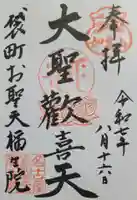 奉拝
令和七年
八月十六日
大聖歓喜天
袋町お聖天福生院